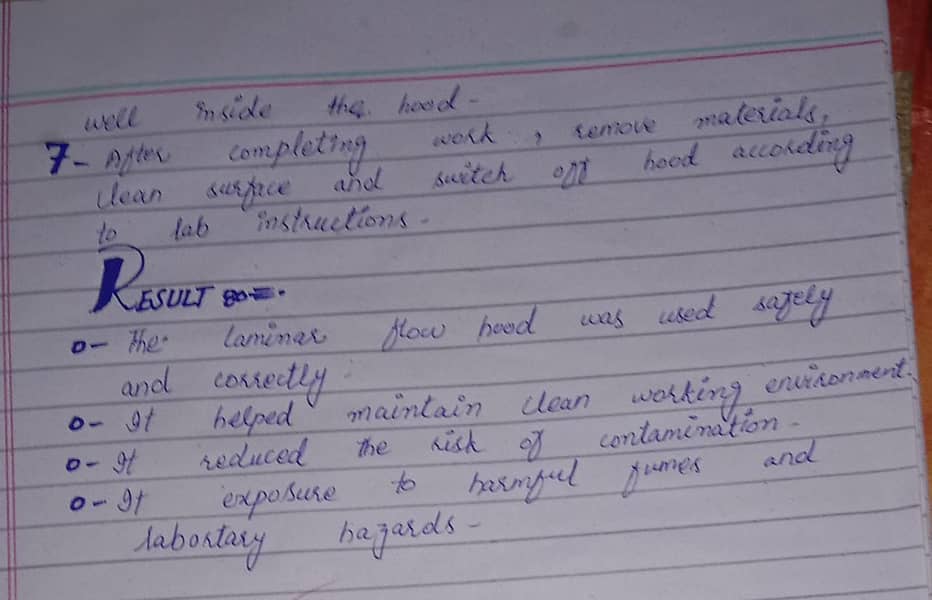 well inside the hood -
7- After completing work, remove materials,
clean surface and switch off hood according
to lab instructions -
RESULT :-
o- The laminar flow hood was used safely
and correctly.
o- It helped maintain clean working environment.
o- It reduced the risk of contamination -
o- It exposure to harmful fumes and
labortary hazards -